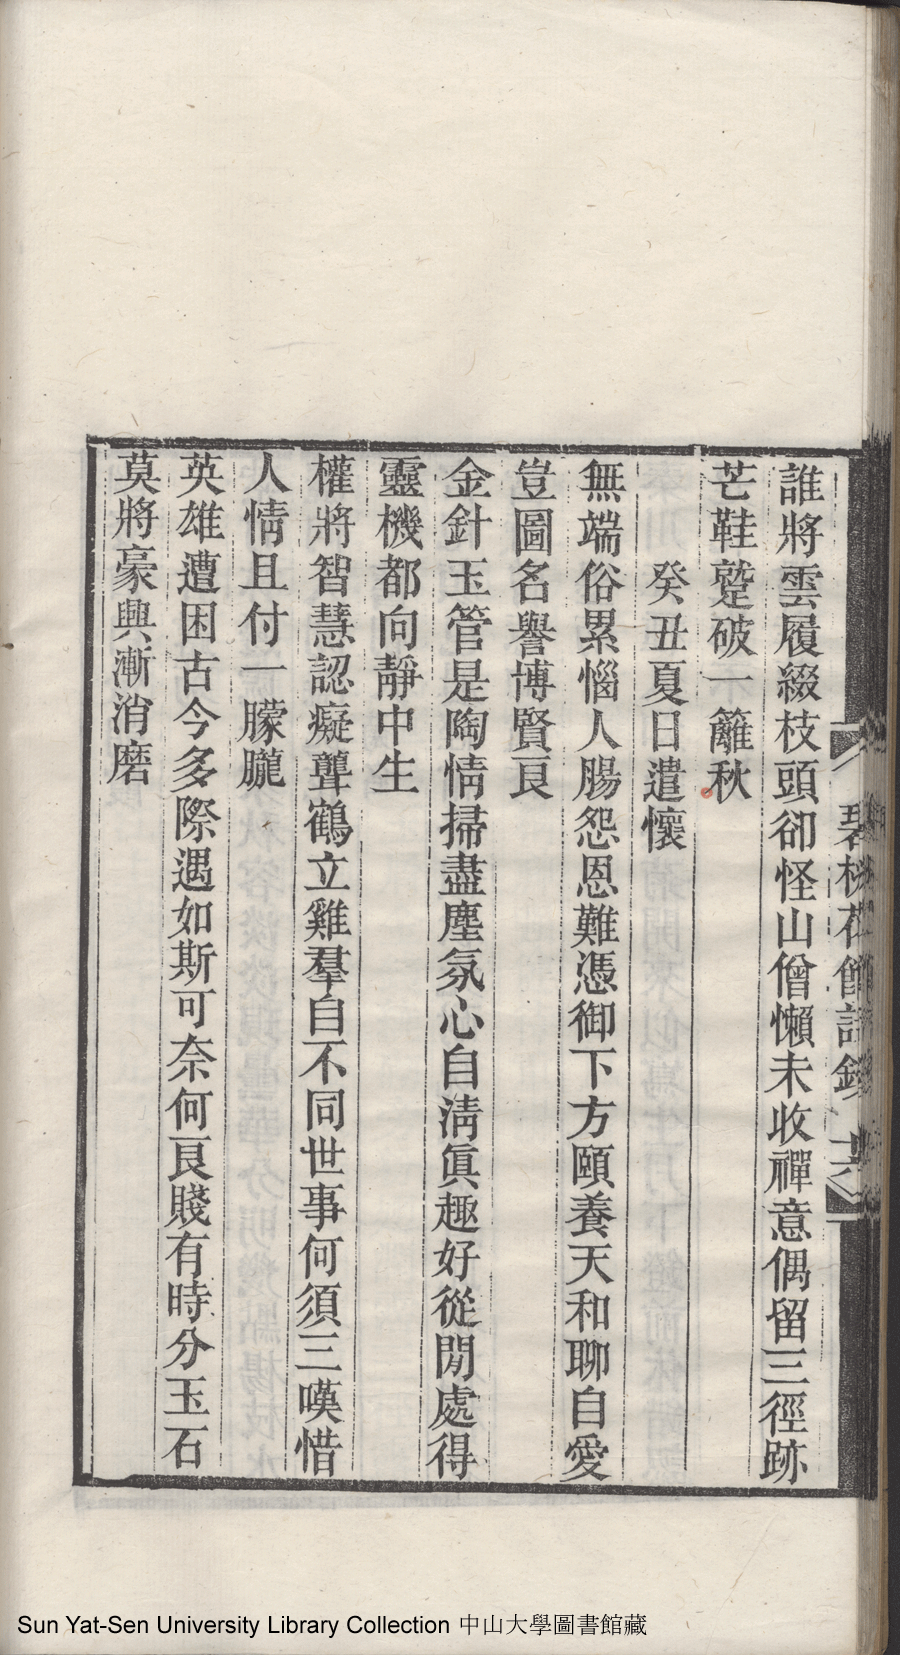 誰將雲履綴枝頭卻怪山僧懶未收禪意偶留三徑跡
芒鞋蹔破一籬秋
癸丑夏日遣懷
無端俗累惱人腸怨恩難憑御下方頤養天和聊自愛
豈圖名譽博賢良
金針玉管是陶情掃盡塵氛心自淸眞趣好從閒處得
靈機都向靜中生
權將智慧認癡聾鶴立雞羣自不同世事何須三嘆惜
人情且付一朦朧
英雄遭困古今多際遇如斯可奈何良賤有時分玉石
莫將豪興漸消磨
Sun Yat-Sen University Library Collection 中山大學圖書館藏